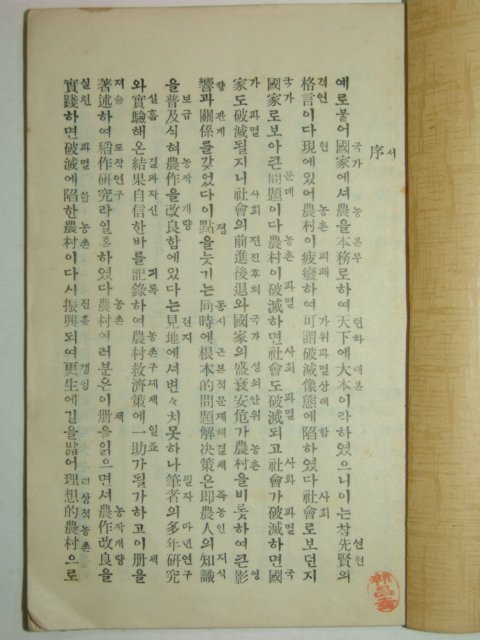 序
예로붙어國家에셔農을本務로하여天下에大本이라하였으니이는참先賢의
格言이다現에있어農村이疲廢하여可謂破滅像態에陷하였다社會로보던지
國家로보아큰問題이다農村이破滅하면社會도破滅되고社會가破滅하면國
家도破滅될지니社會의前進後退와國家의盛衰安危가農村을비롯하여큰影
響과關係를갖었다이點을늣기는同時에根本的問題解決策은即農人의知識
을普及식혀農作을改良함에있다는見地에셔변々치못하나筆者의多年硏究
와實驗해온結果自信한바를記錄하여農村救濟策에一助가될가하고이册을
著述하여稻作硏究라일홈하였다農村여러분은이册을읽으면셔農作改良을
實踐하면破滅에陷한農村이다시振興되여更生에길을밟어理想的農村으로